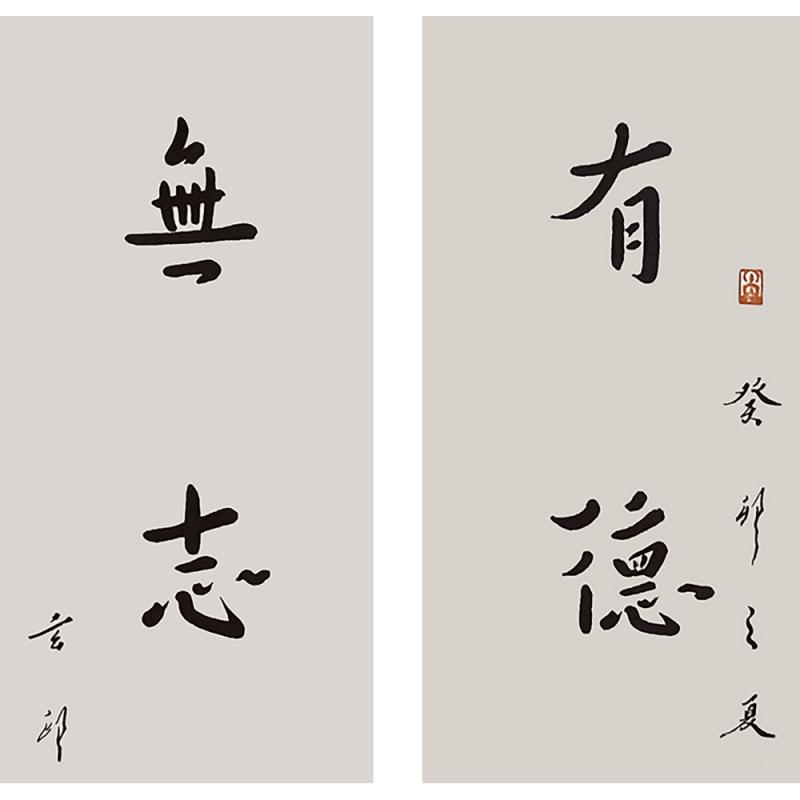 癸卯之夏
有德
無志
玄卯